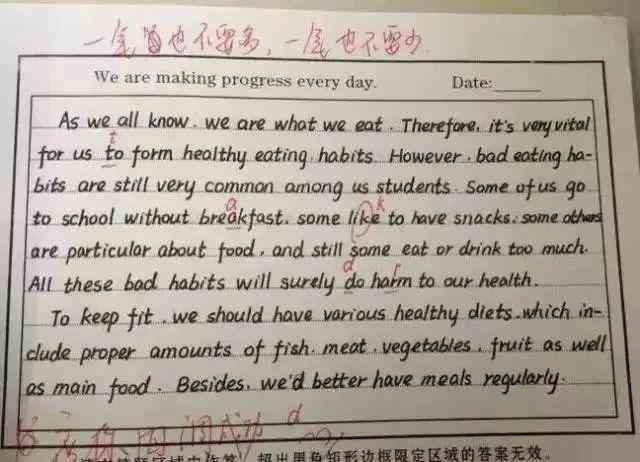 一尾也不要多，一尾也不要少.
We are making progress every day. Date:
As we all know, we are what we eat. Therefore, it's very vital
t
for us to form healthy eating habits. However, bad eating ha-
bits are still very common among us students. Some of us go
a k
to school without breakfast, some like to have snacks, some others
are particular about food, and still some eat or drink too much.
d r
All these bad habits will surely do harm to our health.
To keep fit, we should have various healthy diets, which in-
clude proper amounts of fish, meat, vegetables, fruit as well
as main food. Besides, we'd better have meals regularly.
成功 d
超出黑色矩形边框限定区域的答案无效。